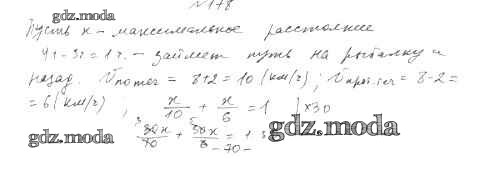 №178
gdz.moda
Пусть x - максимальное расстояние
4ч - 3ч = 1ч. - займет путь на рыбалку и
назад. Vпо теч = 8+2 = 10 (км/ч); Vпрот.теч = 8-2 =
= 6 (км/ч) ; x/10 + x/6 = 1 | ×30
gdz.moda 30x/10 + 30x/6 = 1
gdz.moda